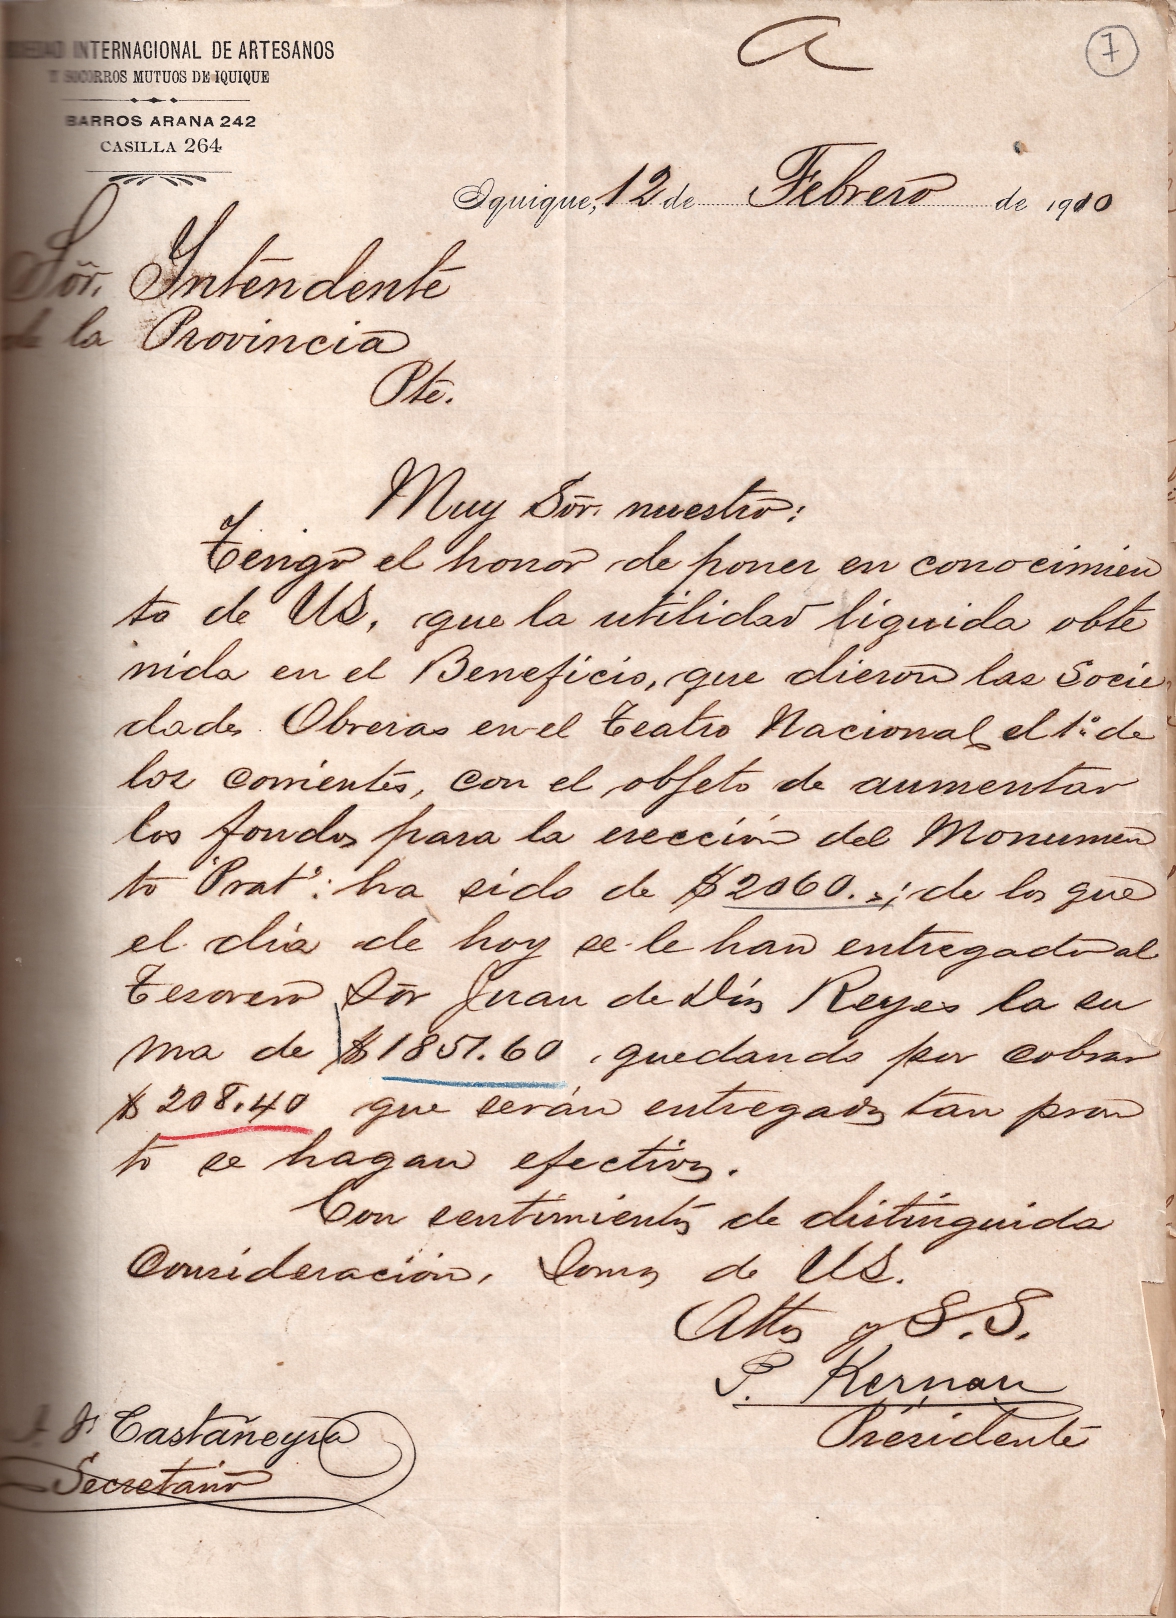 a
7
SOCIEDAD INTERNACIONAL DE ARTESANOS
Y SOCORROS MUTUOS DE IQUIQUE
BARROS ARANA 242
CASILLA 264
Iquique, 12 de Febrero de 1910
Sor. Intendente
de la Provincia
Pte.
Muy Sor. nuestro:
Tengo el honor de poner en conocimien
to de US, que la utilidad liquida obte
nida en el Beneficio, que dieron las Socie
dades Obreras en el Teatro Nacional, el 1º de
los corrientes, con el objeto de aumentar
los fondos para la erección del Monumen
to "Prat": ha sido de $2060.-; de los que
el dia de hoy se le han entregado al
Tesorero Sor Juan de Dios Reyes la su
ma de $1851.60, quedando por cobrar
$208.40 que serán entregados tan pron
to se hagan efectivos.
Con sentimientos de distinguida
consideración, Somos de US.
Attos y S.S.
P. Kernan
Presidente
Castañeyra
Secretario